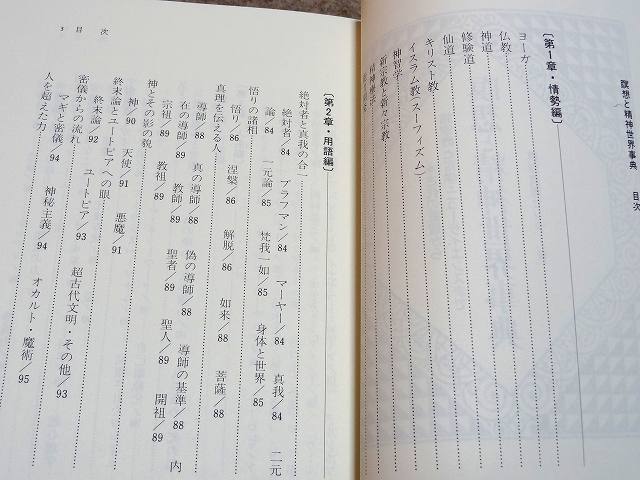 瞑想と精神世界事典 目次
〔第1章・情勢編〕
ヨーガ
仏教
神道
修験道
仙道
キリスト教
イスラム教(スーフィズム)
神智学
新宗教と新々宗教
精神療法
3 目次
〔第2章・用語編〕
絶対者と真我の合一
絶対者/84 ブラフマン/84 マーヤー/84 真我/84 二元
論/84 一元論/85 梵我一如/85 身体と世界/85
悟りの諸相
悟り/86 涅槃/86 解脱/86 如来/88 菩薩/88
真理を伝える人
導師/88 真の導師/88 偽の導師/88 導師の基準/88 内
在の導師/89 教師/89 聖者/89 聖人/89 開祖/89
宗祖/89 教祖/89
神とその影の貌
神/90 天使/91 悪魔/91
終末論とユートピアへの眼
終末論/92 ユートピア/93 超古代文明・その他/93
密儀からの流れ
マギと密儀/94 神秘主義/94 オカルト・魔術/95
人を超えた力